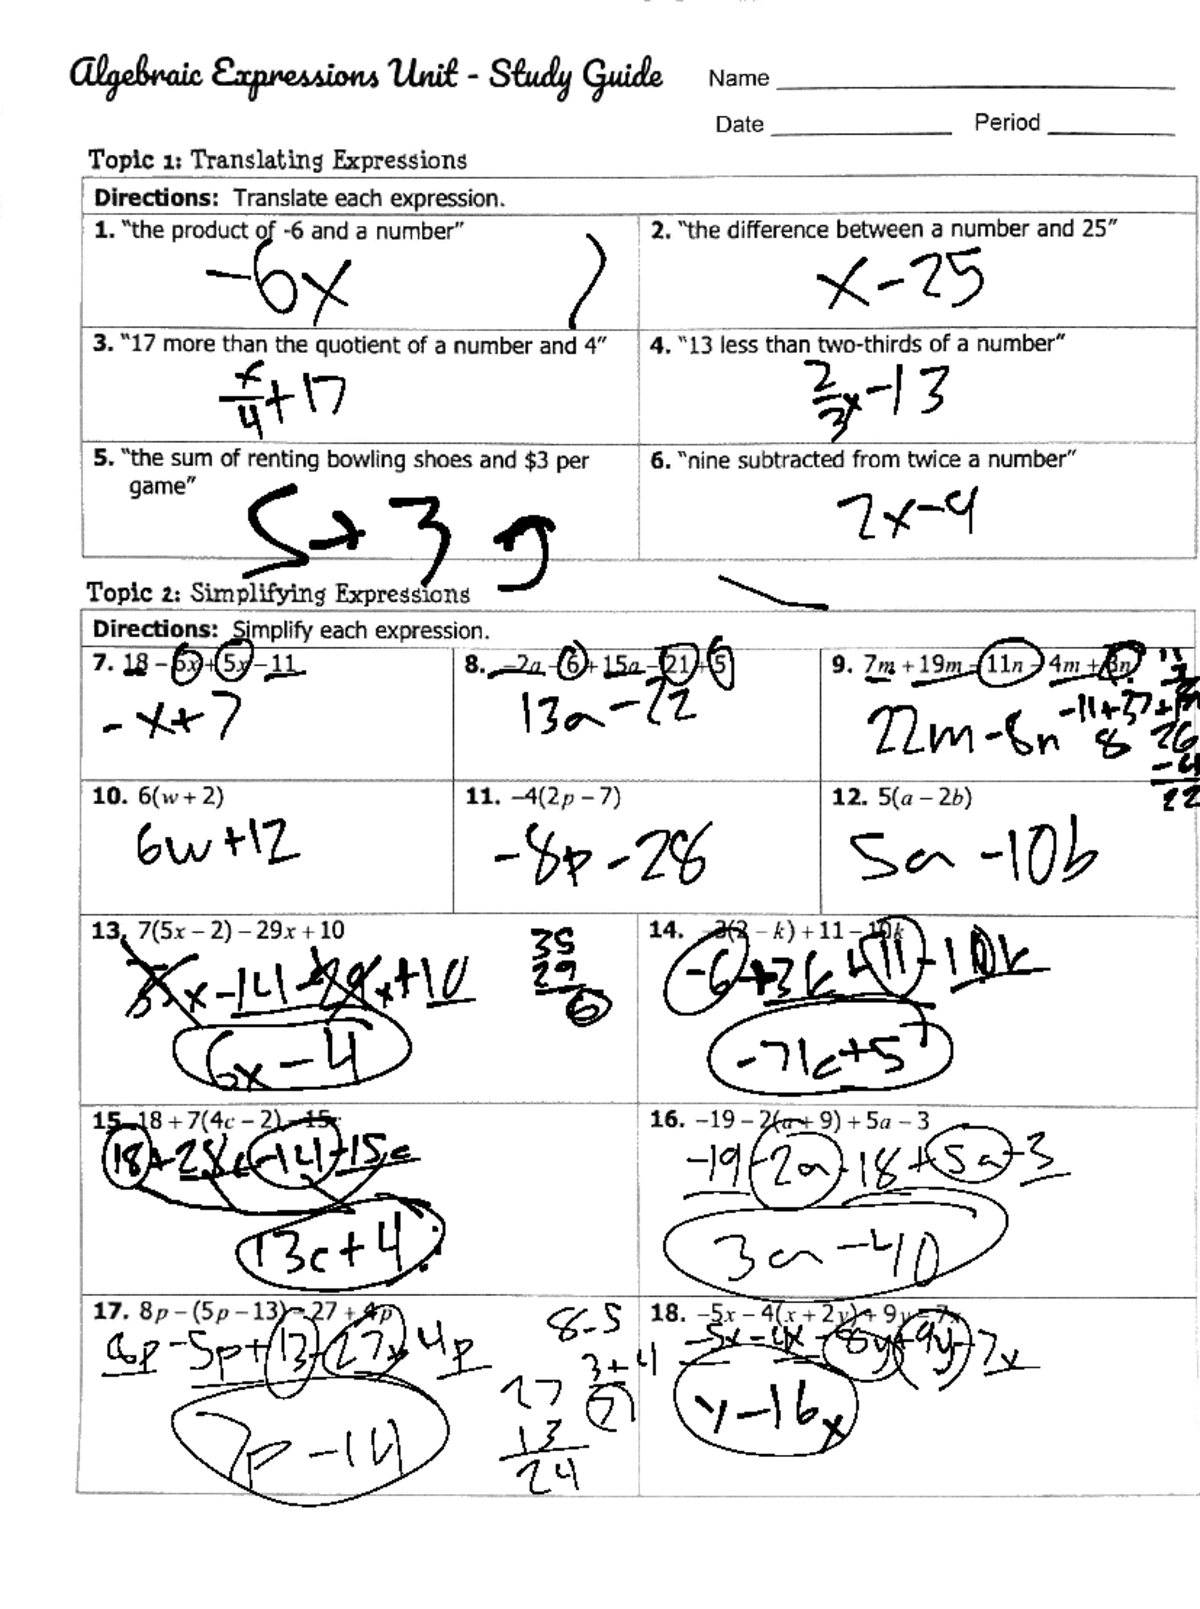 Algebraic Expressions Unit - Study Guide
Name
Date
Period
Topic 1: Translating Expressions
Directions: Translate each expression.
1. "the product of -6 and a number"
-6x
2. "the difference between a number and 25"
x-25
3. "17 more than the quotient of a number and 4"
x/4+17
4. "13 less than two-thirds of a number"
2/3x-13
5. "the sum of renting bowling shoes and $3 per
game"
S+3g
6. "nine subtracted from twice a number"
2x-9
Topic 2: Simplifying Expressions
Directions: Simplify each expression.
7. 18 – 6x + 5x – 11
-x+7
8. –2a – 6 + 15a – 21 + 5
13a-22
9. 7m + 19m – 11n – 4m + 3n
22m-8n
-11+3
8
26
-4
22
10. 6(w + 2)
6w+12
11. –4(2p – 7)
-8p-28
12. 5(a – 2b)
5a-10b
13. 7(5x – 2) – 29x + 10
35x-14-29x+10
35
29
6
6x-4
14. –3(2 – k) + 11 – 10k
-6+3k+11-10k
-7k+5
15. 18 + 7(4c – 2) – 15c
18+28c-14-15c
13c+4
16. –19 – 2(a + 9) + 5a – 3
-19-2a-18+5a-3
3a-40
17. 8p – (5p – 13) – 27 + 4p
8p-5p+13-27+4p
8-5
3+4
7
27
13
24
7p-14
18. –5x – 4(x + 2y) + 9y – 7x
-5x-4x-8y+9y-7x
y-16x